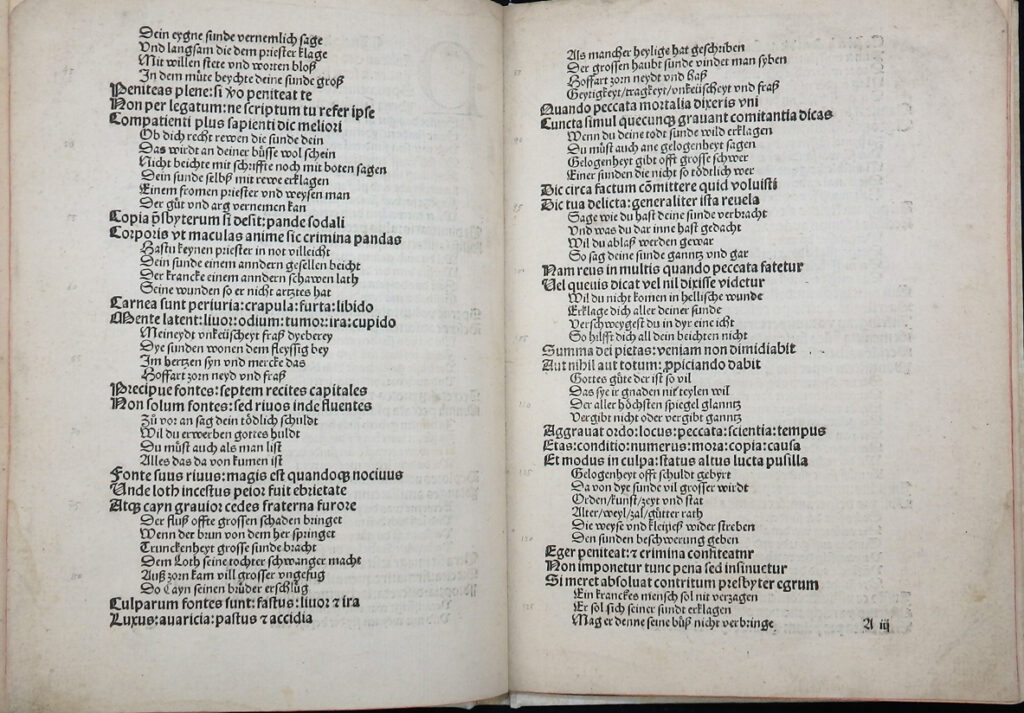 Dein eygne sunde vernemlich sage
Vnd langsam die dem priester klage
Mit willen stete vnd worten bloß
In dem můte beychte deine sunde groß
Peniteas plene: si vo peniteat te
Non per legatum: ne scriptum tu refer ipse
Compatienti plus sapienti dic meliori
Ob dich recht rewen die sunde dein
Das wirdt an deiner bůsse wol schein
Nicht beichte mit schriffte noch mit boten sagen
Dein sunde selbß mit rewe erklagen
Einem fromen priester vnd weysen man
Der gůt vnd arg vernemen kan
Copia p̄sbyterum si desit: pande sodali
Corporis vt maculas anime sic crimina pandas
Hastu keynen priester in not villeicht
Dein sunde einem anndern gesellen beicht
Der krancke einem anndern schawen lath
Seine wunden so er nicht artztes hat
Carnea sunt periuria: crapula: furta: libido
Mente latent: liuor: odium: tumor: ira: cupido
Meineydt vnkeüscheyt fraß dyeberey
Dye sunden wonen dem fleyssig bey
Im hertzen syn vnd mercke das
Hoffart zorn neyd vnd fraß
Precipue fontes: septem recites capitales
Non solum fontes: sed riuos inde fluentes
Zů vor an sag dein tödlich schuldt
Wil du erwerben gottes huldt
Du můst auch als man list
Alles das da von kumen ist
Fonte suus riuus: magis est quandoqꝫ nociuus
Unde loth incestus peior fuit ebrietate
Atqꝫ cayn grauior cedes fraterna furore
Der fluß offte grossen schaden bringet
Wenn der brun von dem her springet
Trunckenheyt grosse sunde bracht
Dem Loth seine tochter schwanger macht
Auß zorn kam vill grosser vngefug
Do Cayn seinen brůder erschlůg
Culparum fontes sunt: fastus: liuor ⁊ ira
Luxus: auaricia: pastus ⁊ accidia
Als mancher heylige hat geschriben
Der grossen haubt sunde vindet man syben
Hoffart zorn neydt vnd haß
Geytigkeyt/tragkeyt/vnkeüscheyt vnd fraß
Quando peccata mortalia dixeris vni
Cuncta simul quecunqꝫ grauant comitantia dicas
Wenn du deine todt sunde wild erklagen
Du můst auch ane gelogenheyt sagen
Gelogenheyt gibt offt grosse schwer
Einer sunden die nicht so tödtlich wer
Dic circa factum cōmittere quid voluisti
Dic tua delicta: generaliter ista reuela
Sage wie du hast deine sunde verbracht
Vnd was du dar inne hast gedacht
Wil du ablaß werden gewar
So sag deine sunde ganntz vnd gar
Nam reus in multis quando peccata fatetur
Uel queuis dicat vel nil dixisse videtur
Wil du nicht komen in hellische wunde
Erklage dich aller deiner sunde
Verschweygest du in dyr eine icht
So hilfft dich all dein beichten nicht
Summa dei pietas: veniam non dimidiabit
Aut nihil aut totum: ꝓpiciando dabit
Gottes gůte der ist so vil
Das sye ir gnaden nit teylen wil
Der aller höchsten spiegel glanntz
Vergibt nicht oder vergibt ganntz
Aggrauat ordo: locus: peccata: scientia: tempus
Etas: conditio: numerus: mora: copia: causa
Et modus in culpa: status altus lucta pusilla
Gelogenheyt offt schuldt gebyrt
Da von dye sunde vil grosser wirdt
Orden/kunst/zeyt vnd stat
Alter/weyl/zal/gůtter rath
Die weyse vnd kleines wider streben
Den sunden beschwerung geben
Eger peniteat: ⁊ crimina confiteatur
Non imponetur tunc pena sed insinuetur
Si meret absoluat contritum presbyter egrum
Ein kranckes mensch sol nit verzagen
Er sol sich seiner sundt erklagen
Mag er denne seine bůß nicht verbringe
A iij